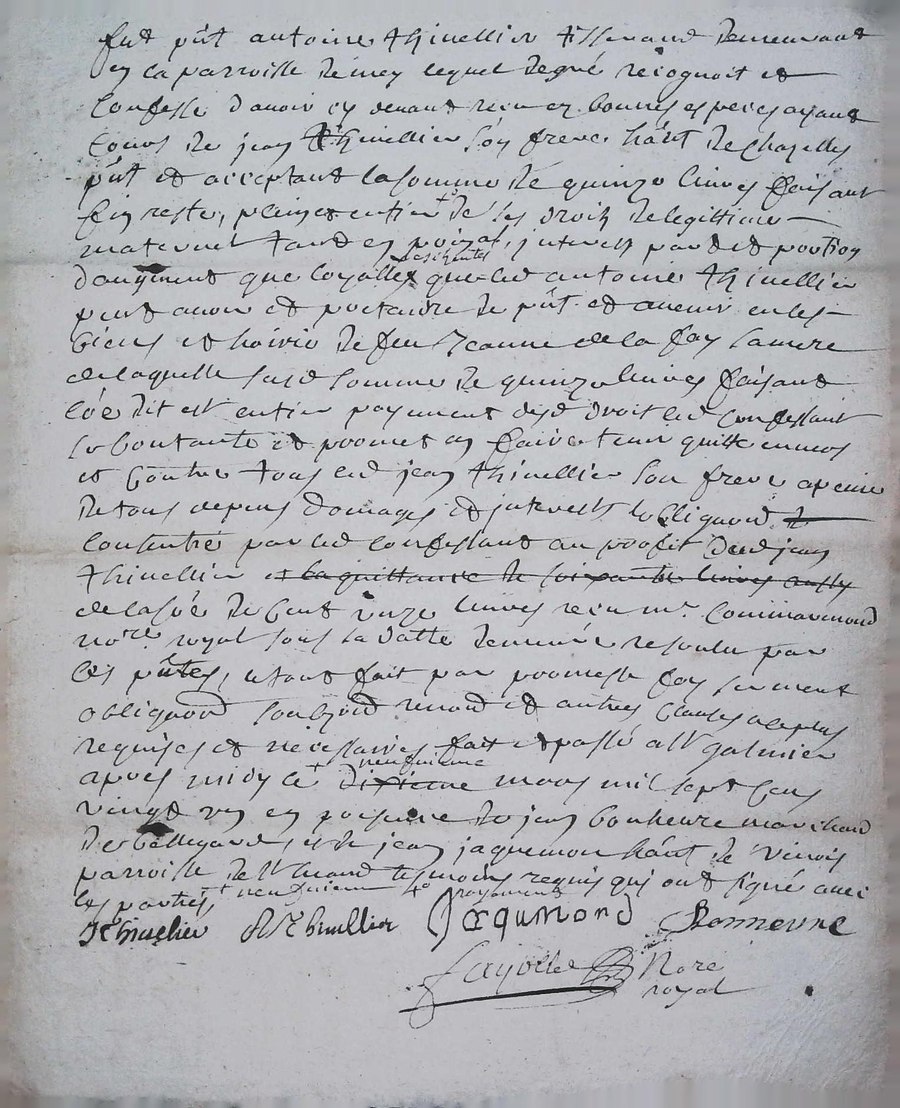 fut p̃nt antoine thinellier tisserand demeurant
en la parroisse de mey lequel de gré recognoit et
confesse d'avoir cy devant receu en bonnes especes ayant
cours de jean thinellier son frere hãnt de Chazelles
p̃nt et acceptant la somme de quinze livres faisant
fin reste, plein et entier + de ses droits de legittime
maternel tant en principal, interests part et portion
d'augment que loyalles escheutes que led antoine thinellier
peut avoir et pretandre de p̃nt et avenir en les
biens et hoirie de feu Jeanne de la fay sa mere
de laquelle susd somme de quinze livres faisant
co'e dit est entier payement desd droits led confessant
se contante et promet en faire tenir quitte envers
et contre tous led jean thinellier son frere a peine
de tous depens domages et interests l'obligation
contentée par led confessant au proffit dud jean
thinellier et la quittance de soixante livres aussy
de la so'e de cent unze livres receu mr. Commarmond
no.re royal sous la datte demeurée resolu par
ces p̃ntes, et tout fait par promesse foy serment
obligation soubzmis renond et autres clauses a ce plus
requises et necessaires fait et passé a St galmier
apres midy ce + dixieme neufvieme mars mil sept cens
vingt un en presence de jean bonheure marchand
de bellegard, et de jean jaquemon hãnt de Virois
parroisse de St Medard tesmoins requis qui ont signé avec
les parties + neufvieme to payement
J Thinelier A Thinellier Jaqumond Bonneure
fayolle No.re
royal